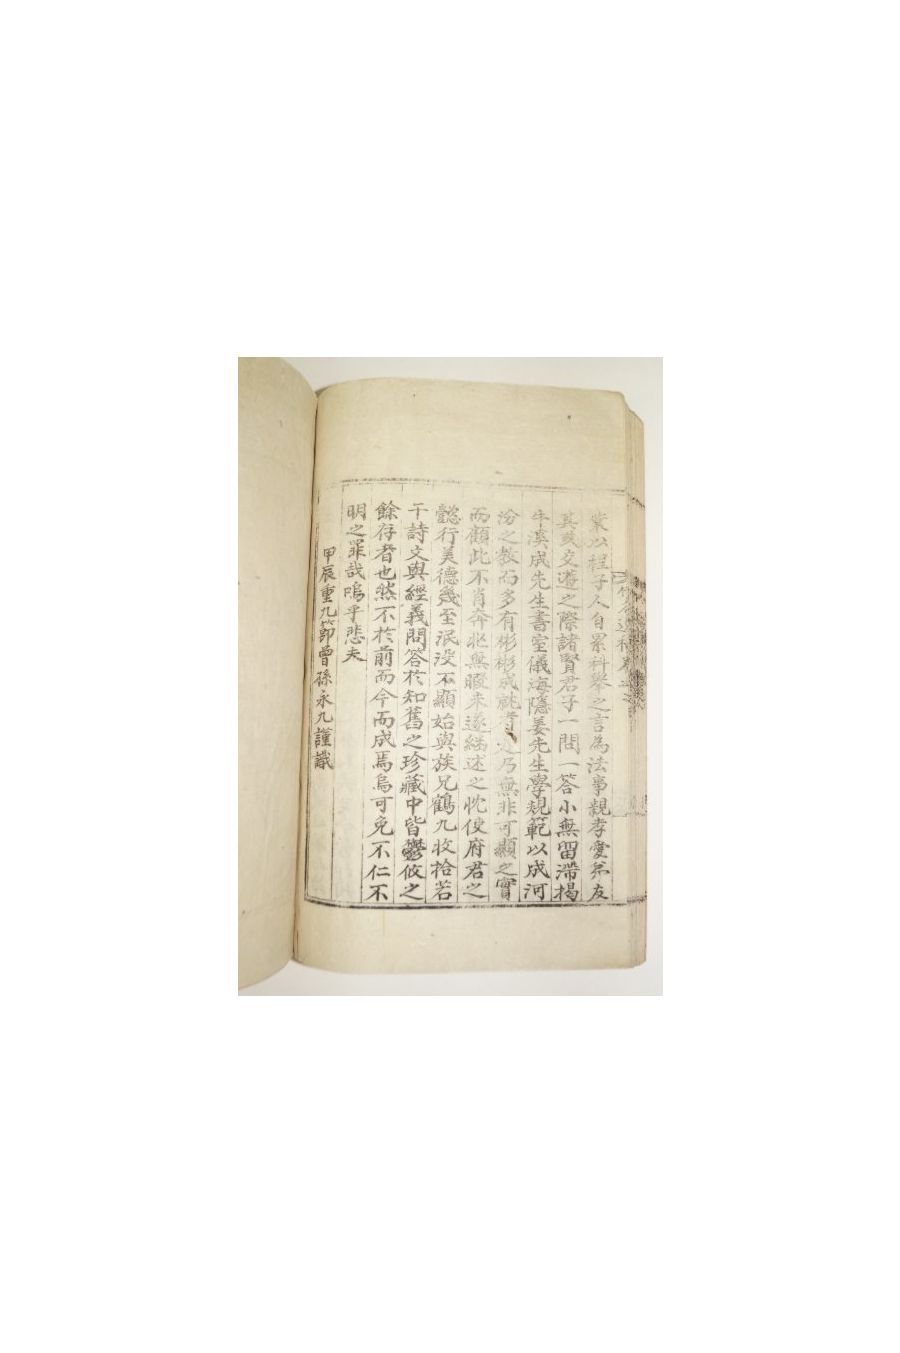 業以程子人自累科舉之言為法事親孝愛弟友
其友交遊之際諸賢君子一問一答小無留滯揭
牛溪成先生書室儀海隱姜先生學規範以成河
汾之教而多有彬彬成就者 乃無非可顯之實
而顧此不肖奔北無暇未遂繼述之忱使府君之
懿行美德幾至泯没不顯始與族兄鶴九收拾若
干詩文與經義問答於知舊之珍藏中皆鬱攸之
餘存者也然不於前而今而成焉烏可免不仁不
明之罪哉嗚乎悲夫
甲辰重九節曾孫永九謹識